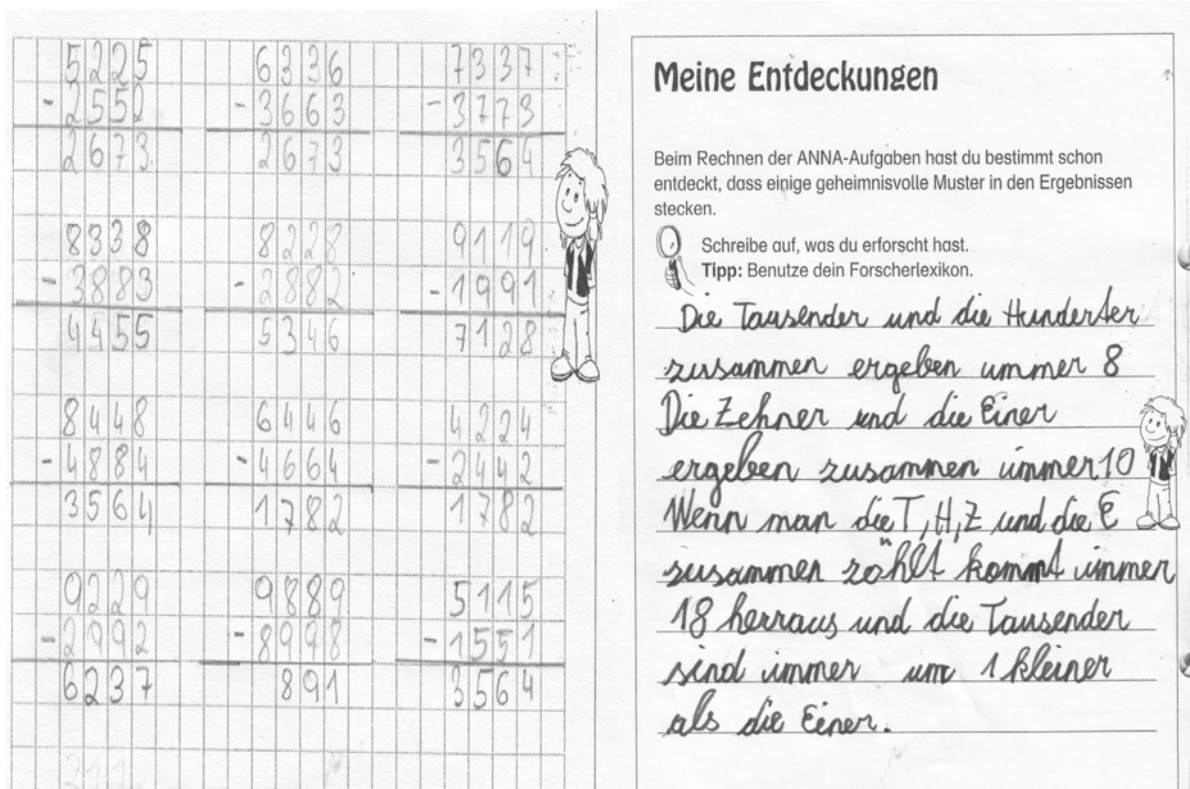 5225
- 2552
2673
6336
- 3663
2673
7337
- 3773
3564
8338
- 3883
4455
8228
- 2882
5346
9119
- 1991
7128
8448
- 4884
3564
6446
- 4664
1782
4224
- 2442
1782
9229
- 2992
6237
9889
- 8998
891
5115
- 1551
3564
Meine Entdeckungen
Beim Rechnen der ANNA-Aufgaben hast du bestimmt schon
entdeckt, dass einige geheimnisvolle Muster in den Ergebnissen
stecken.
Schreibe auf, was du erforscht hast.
Tipp: Benutze dein Forscherlexikon.
Die Tausender und die Hunderter
zusammen ergeben ummer 8
Die Zehner und die Einer
ergeben zusammen immer 10
Wenn man die T, H, Z und die E
zusammen zählt kommt immer
18 herraus und die Tausender
sind immer um 1 kleiner
als die Einer.